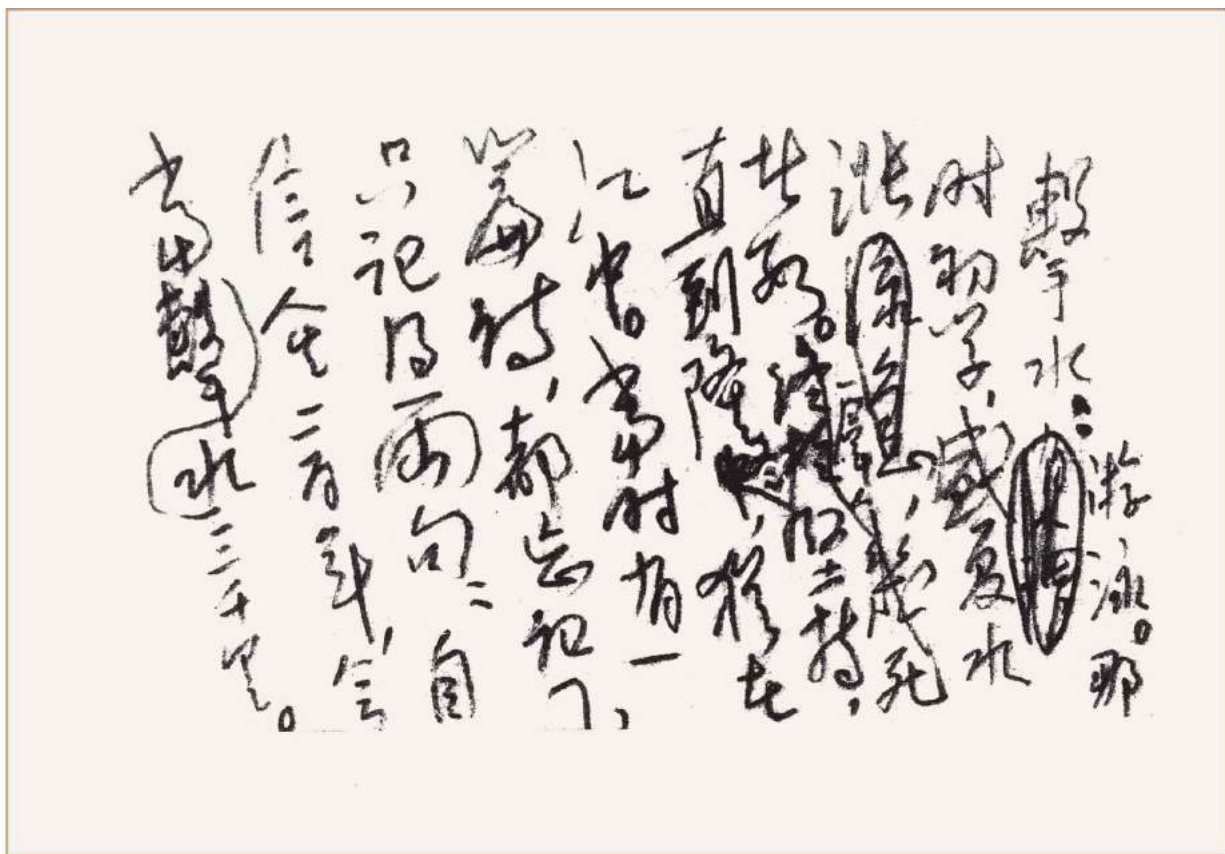 擊水：游泳。那
时初学，盛夏水
涨，幾死
者数。一群人终於坚持，
直到隆冬，犹在
江中。当时有一
篇诗，都忘记了，
只记得两句：自
信人生二百年，会
当擊水三千里。